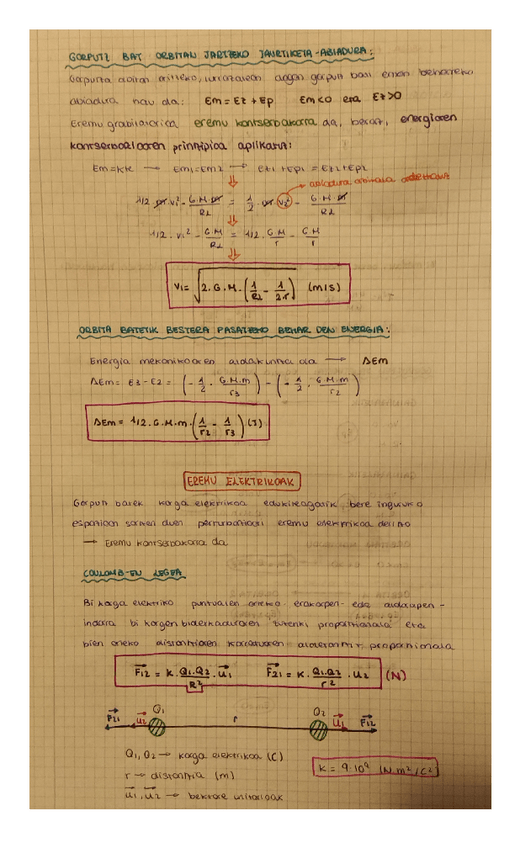 GORPUTZ BAT ORBITAN JARTZEKO JAURTIKETA-ABIADURA:
Gorputza abian jartzeko, lurrazalean dagoen gorputz bati eman beharreko
abiadura hau da: Em = Ez + Ep Em<0 eta Ez>0
Eremu grabitatorioa eremu kontserbakorra da, beraz, energiaren
kontserbazioaren printzipioa aplikatuz:
Em=kte → Em1=Em2 → Ez1+Ep1 = Ez2+Ep2
→ abiadura orbitala ordezkatuz
1/2 . m . v1² - G.M.m/RL = 1/2 . m . v2² - G.M.m/RL
1/2 . v1² - G.M/RL = 1/2 . G.M/r - G.M/r
V1 = √2.G.M.(1/RL - 1/2.r) (m/s)
ORBITA BATETIK BESTERA PASATZEKO BEHAR DEN ENERGIA:
Energia mekanikoaren aldakuntza da → ΔEm
ΔEm = E3 - E2 = (- 1/2 . G.M.m/r3) - (- 1/2 . G.M.m/r2)
ΔEm = 1/2.G.M.m.(1/r2 - 1/r3) (J)
EREMU ELEKTRIKOAK
Gorputz batek karga elektrikoa edukitzeagatik bere inguruko
espazioan sortzen duen perturbazioari eremu elektrikoa deritzo
→ Eremu kontserbakorra da
COULOMB-EN LEGEA
Bi karga elektriko puntualen arteko erakarpen- edo aldarapen-
indarra bi kargen biderkaduraren zuzenki proportzionala eta
bien arteko distantziaren karratuaren alderantziz proportzionala
F12 = K . Q1.Q2/R² . u1 F21 = K . Q1.Q2/r² . u2 (N)
Q1 Q2
F21 u2 r u1 F12
Q1, Q2 → karga elektrikoa (C)
r → distantzia (m)
K = 9·10⁹ (N.m²/C²)
u1, u2 → bektore unitarioak